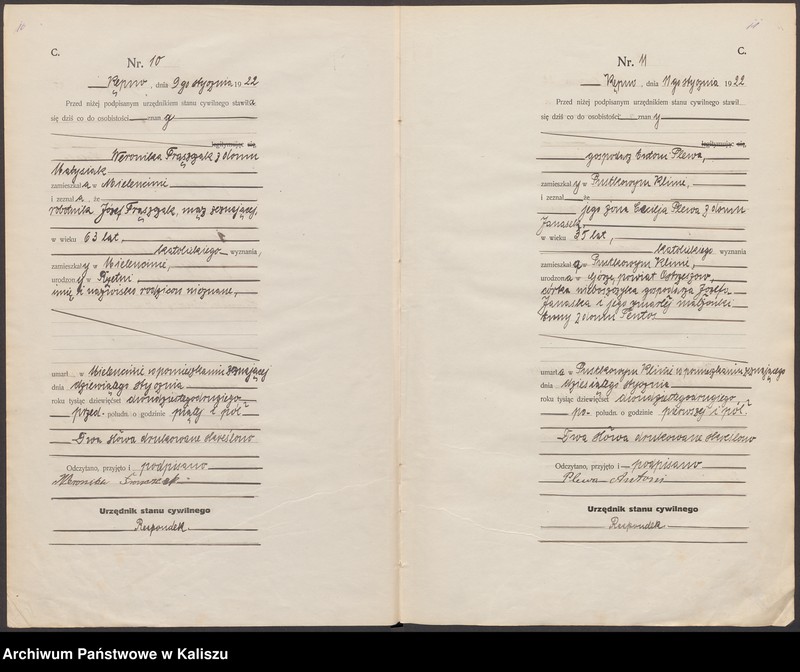 10
C.
Nr. 10
Kępno, dnia 9go stycznia 1922
Przed niżej podpisanym urzędnikiem stanu cywilnego stawiła
się dziś co do osobistości znan
legitymując się,
Weronika Frąszczak z domu
Matysiak
zamieszkała w Mielęcinie
i zeznała, że
robotnik Józef Frąszczak, mąż zeznającej,
w wieku 63 lat,
katolickiego wyznania,
zamieszkały w Mielęcinie,
urodzony w
imię i nazwisko rodziców nieznane,
umarł w Mielęcinie w pomieszkaniu zeznającej
dnia dziewiątego stycznia
roku tysiąc dziewięćset dwudziestegodrugiego
przed połudn. o godzinie piątej i pół
Dwa słowa drukowane skreślono
Odczytano, przyjęto i podpisano
Weronika
Urzędnik stanu cywilnego
Respondek
11
C.
Nr. 11
Kępno, dnia 11go stycznia 1922
Przed niżej podpisanym urzędnikiem stanu cywilnego stawił
się dziś co do osobistości znany
legitymując się,
gospodarz Antoni Plewa,
zamieszkały w Pustkowym Klinie,
i zeznał, że
jego żona Cecylja Plewa z domu
Janaska,
w wieku 35 lat,
katolickiego wyznania
zamieszkała w Pustkowym Klinie,
urodzona w powiat Ostrzeszów,
córka nieboszczyka gospodarza Józefa
Janaska i jego zmarłej małżonki
Anny z domu Pentos
umarła w Pustkowym Klinie w pomieszkaniu zeznającego
dnia dziesiątego stycznia
roku tysiąc dziewięćset dwudziestegodrugiego
po połudn. o godzinie pierwszej i pół
Dwa słowa drukowane skreślono
Odczytano, przyjęto i podpisano
Plewa Antoni
Urzędnik stanu cywilnego
Respondek
Archiwum Państwowe w Kaliszu